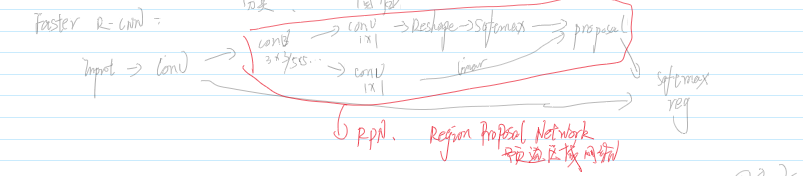 Faster R-CNN =
conv → Reshape → Softmax → proposal
1×1
Input → conv → conv
3×3/5×5...
conv
1×1
linear
softmax
reg
RPN. Region Proposal Network
预选区域网络